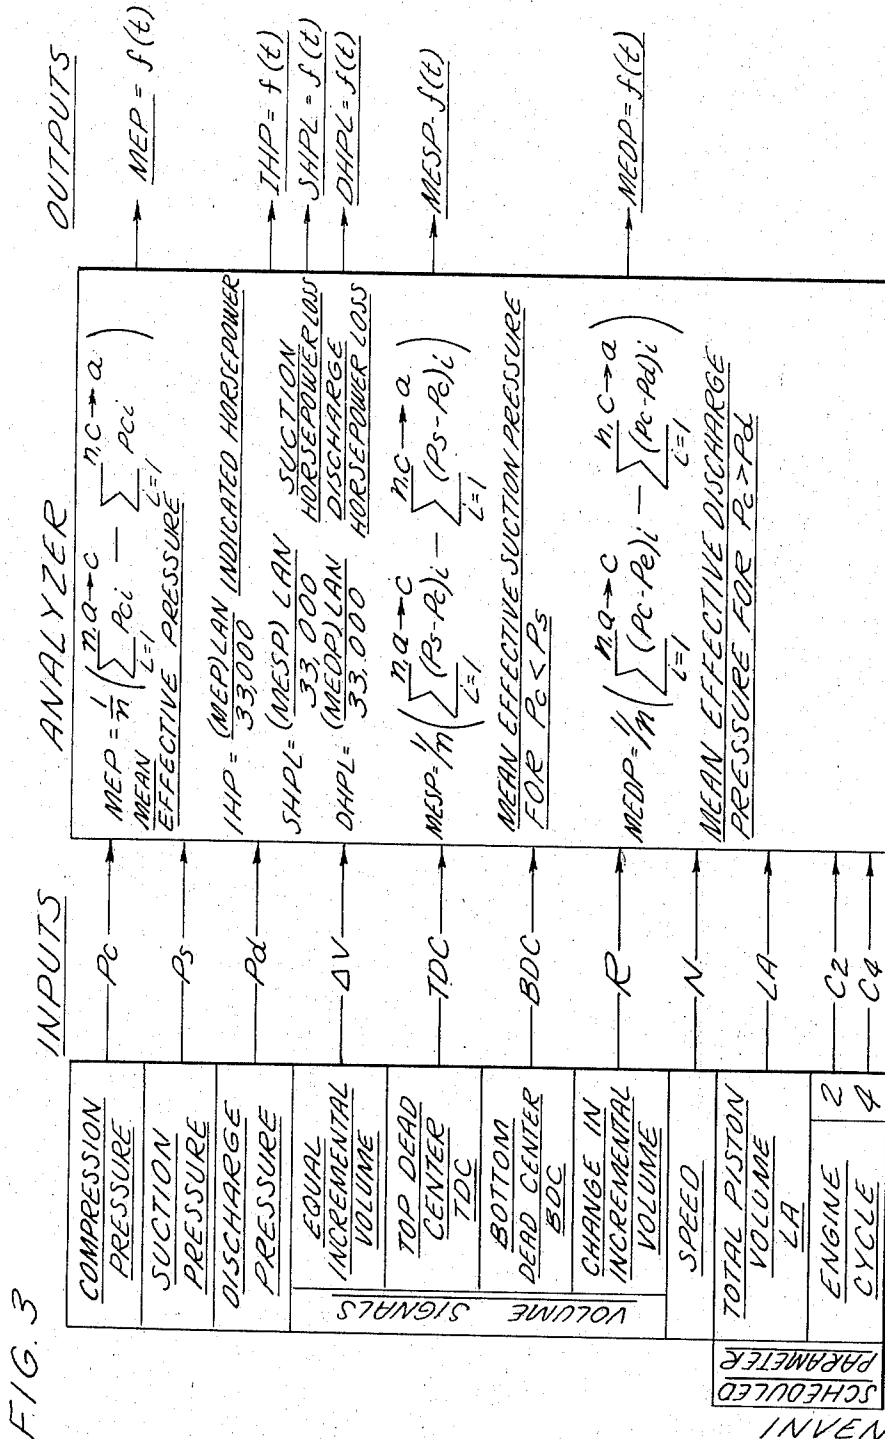 FIG. 3
INPUTS
ANALYZER
OUTPUTS
COMPRESSION
PRESSURE
Pc
SUCTION
PRESSURE
Ps
DISCHARGE
PRESSURE
Pd
VOLUME SIGNALS
EQUAL
INCREMENTAL
VOLUME
ΔV
TOP DEAD
CENTER
TDC
TDC
BOTTOM
DEAD CENTER
BDC
BDC
CHANGE IN
INCREMENTAL
VOLUME
R
SPEED
N
SCHEDULED
PARAMETER
TOTAL PISTON
VOLUME
LA
LA
ENGINE
CYCLE
2
4
C2
C4
MEP = 1/n ( n.a→c ∑ i=1 Pci — n.c→a ∑ i=1 Pci )
MEAN
EFFECTIVE PRESSURE
IHP = (MEP)LAN / 33,000 INDICATED HORSEPOWER
SHPL = (MESP) LAN / 33,000 SUCTION
HORSEPOWER LOSS
DHPL = (MEDP)LAN / 33.000 DISCHARGE
HORSEPOWER LOSS
MESP = 1/n ( n.a→c ∑ i=1 (Ps-Pc)i — n.c→a ∑ i=1 (Ps-Pc)i )
MEAN EFFECTIVE SUCTION PRESSURE
FOR Pc < Ps
MEDP = 1/n ( n.a→c ∑ i=1 (Pc-Pe)i — n.c→a ∑ i=1 (Pc-Pd)i )
MEAN EFFECTIVE DISCHARGE
PRESSURE FOR Pc > Pd
MEP = f(t)
IHP = f(t)
SHPL = f(t)
DHPL = f(t)
MESP - f(t)
MEDP = f(t)
INVEN